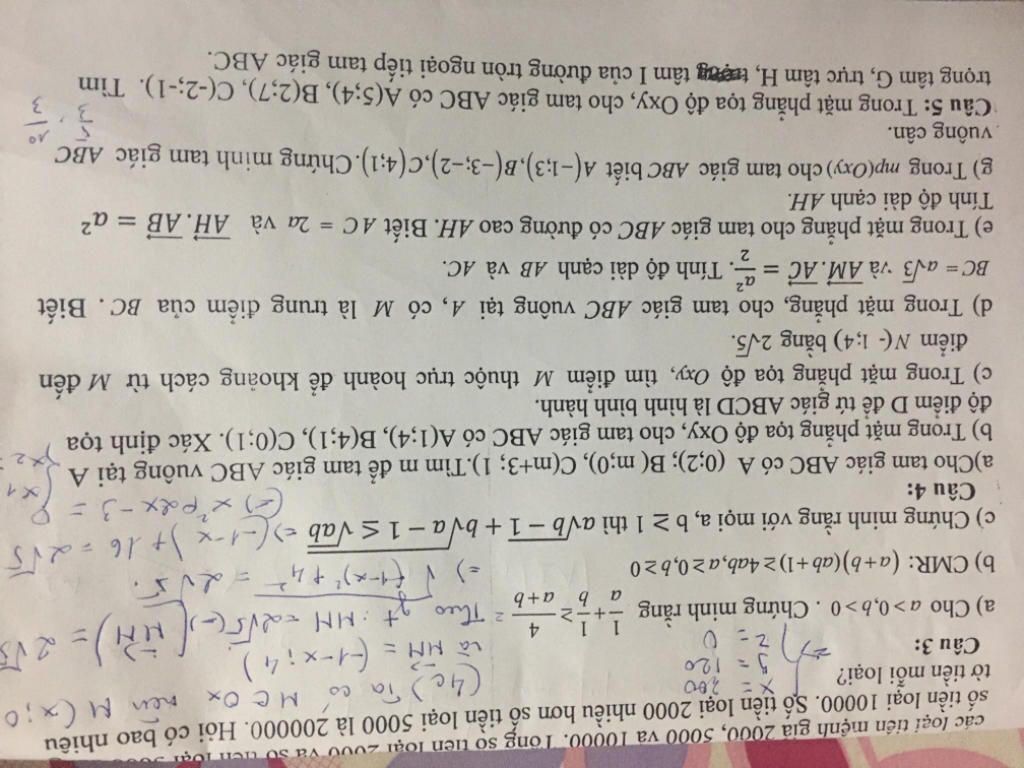 các loại tiền mệnh giá 2000, 5000 và 10000. Tổng số tiền loại 2000 và số tiền loại 5000
số tiền loại 10000. Số tiền loại 2000 nhiều hơn số tiền loại 5000 là 200000. Hỏi có bao nhiêu
tờ tiền mỗi loại?
x = 200
y = 120
z = 0
(4c) Ta có M ∈ Ox nên M (x; 0
và MN = (-1-x; 4)
Theo gt: MN = 2√5 (=) |MN| = 2√5
Câu 3:
a) Cho a > 0, b > 0 . Chứng minh rằng 1/a + 1/b ≥ 4/(a+b)
b) CMR: (a+b)(ab+1) ≥ 4ab, a ≥ 0, b ≥ 0
c) Chứng minh rằng với mọi a, b ≥ 1 thì a√b − 1 + b√a − 1 ≤ √ab
Câu 4:
a)Cho tam giác ABC có A (0;2); B( m;0), C(m+3; 1).Tìm m để tam giác ABC vuông tại A
b) Trong mặt phẳng tọa độ Oxy, cho tam giác ABC có A(1;4), B(4;1), C(0;1). Xác định tọa
độ điểm D để tứ giác ABCD là hình bình hành.
c) Trong mặt phẳng tọa độ Oxy, tìm điểm M thuộc trục hoành để khoảng cách từ M đến
điểm N(- 1;4) bằng 2√5.
d) Trong mặt phẳng, cho tam giác ABC vuông tại A, có M là trung điểm của BC . Biết
BC = a√3 và AM. AC = a²/2. Tính độ dài cạnh AB và AC.
e) Trong mặt phẳng cho tam giác ABC có đường cao AH. Biết AC = 2a và AH. AB = a²
Tính độ dài cạnh AH.
g) Trong mp(Oxy) cho tam giác ABC biết A(−1;3), B(−3;−2), C(4;1).Chứng minh tam giác ABC
vuông cân.
Câu 5: Trong mặt phẳng tọa độ Oxy, cho tam giác ABC có A(5;4), B(2;7), C(-2;-1). Tìm
trọng tâm G, trực tâm H, tâm I của đường tròn ngoại tiếp tam giác ABC.